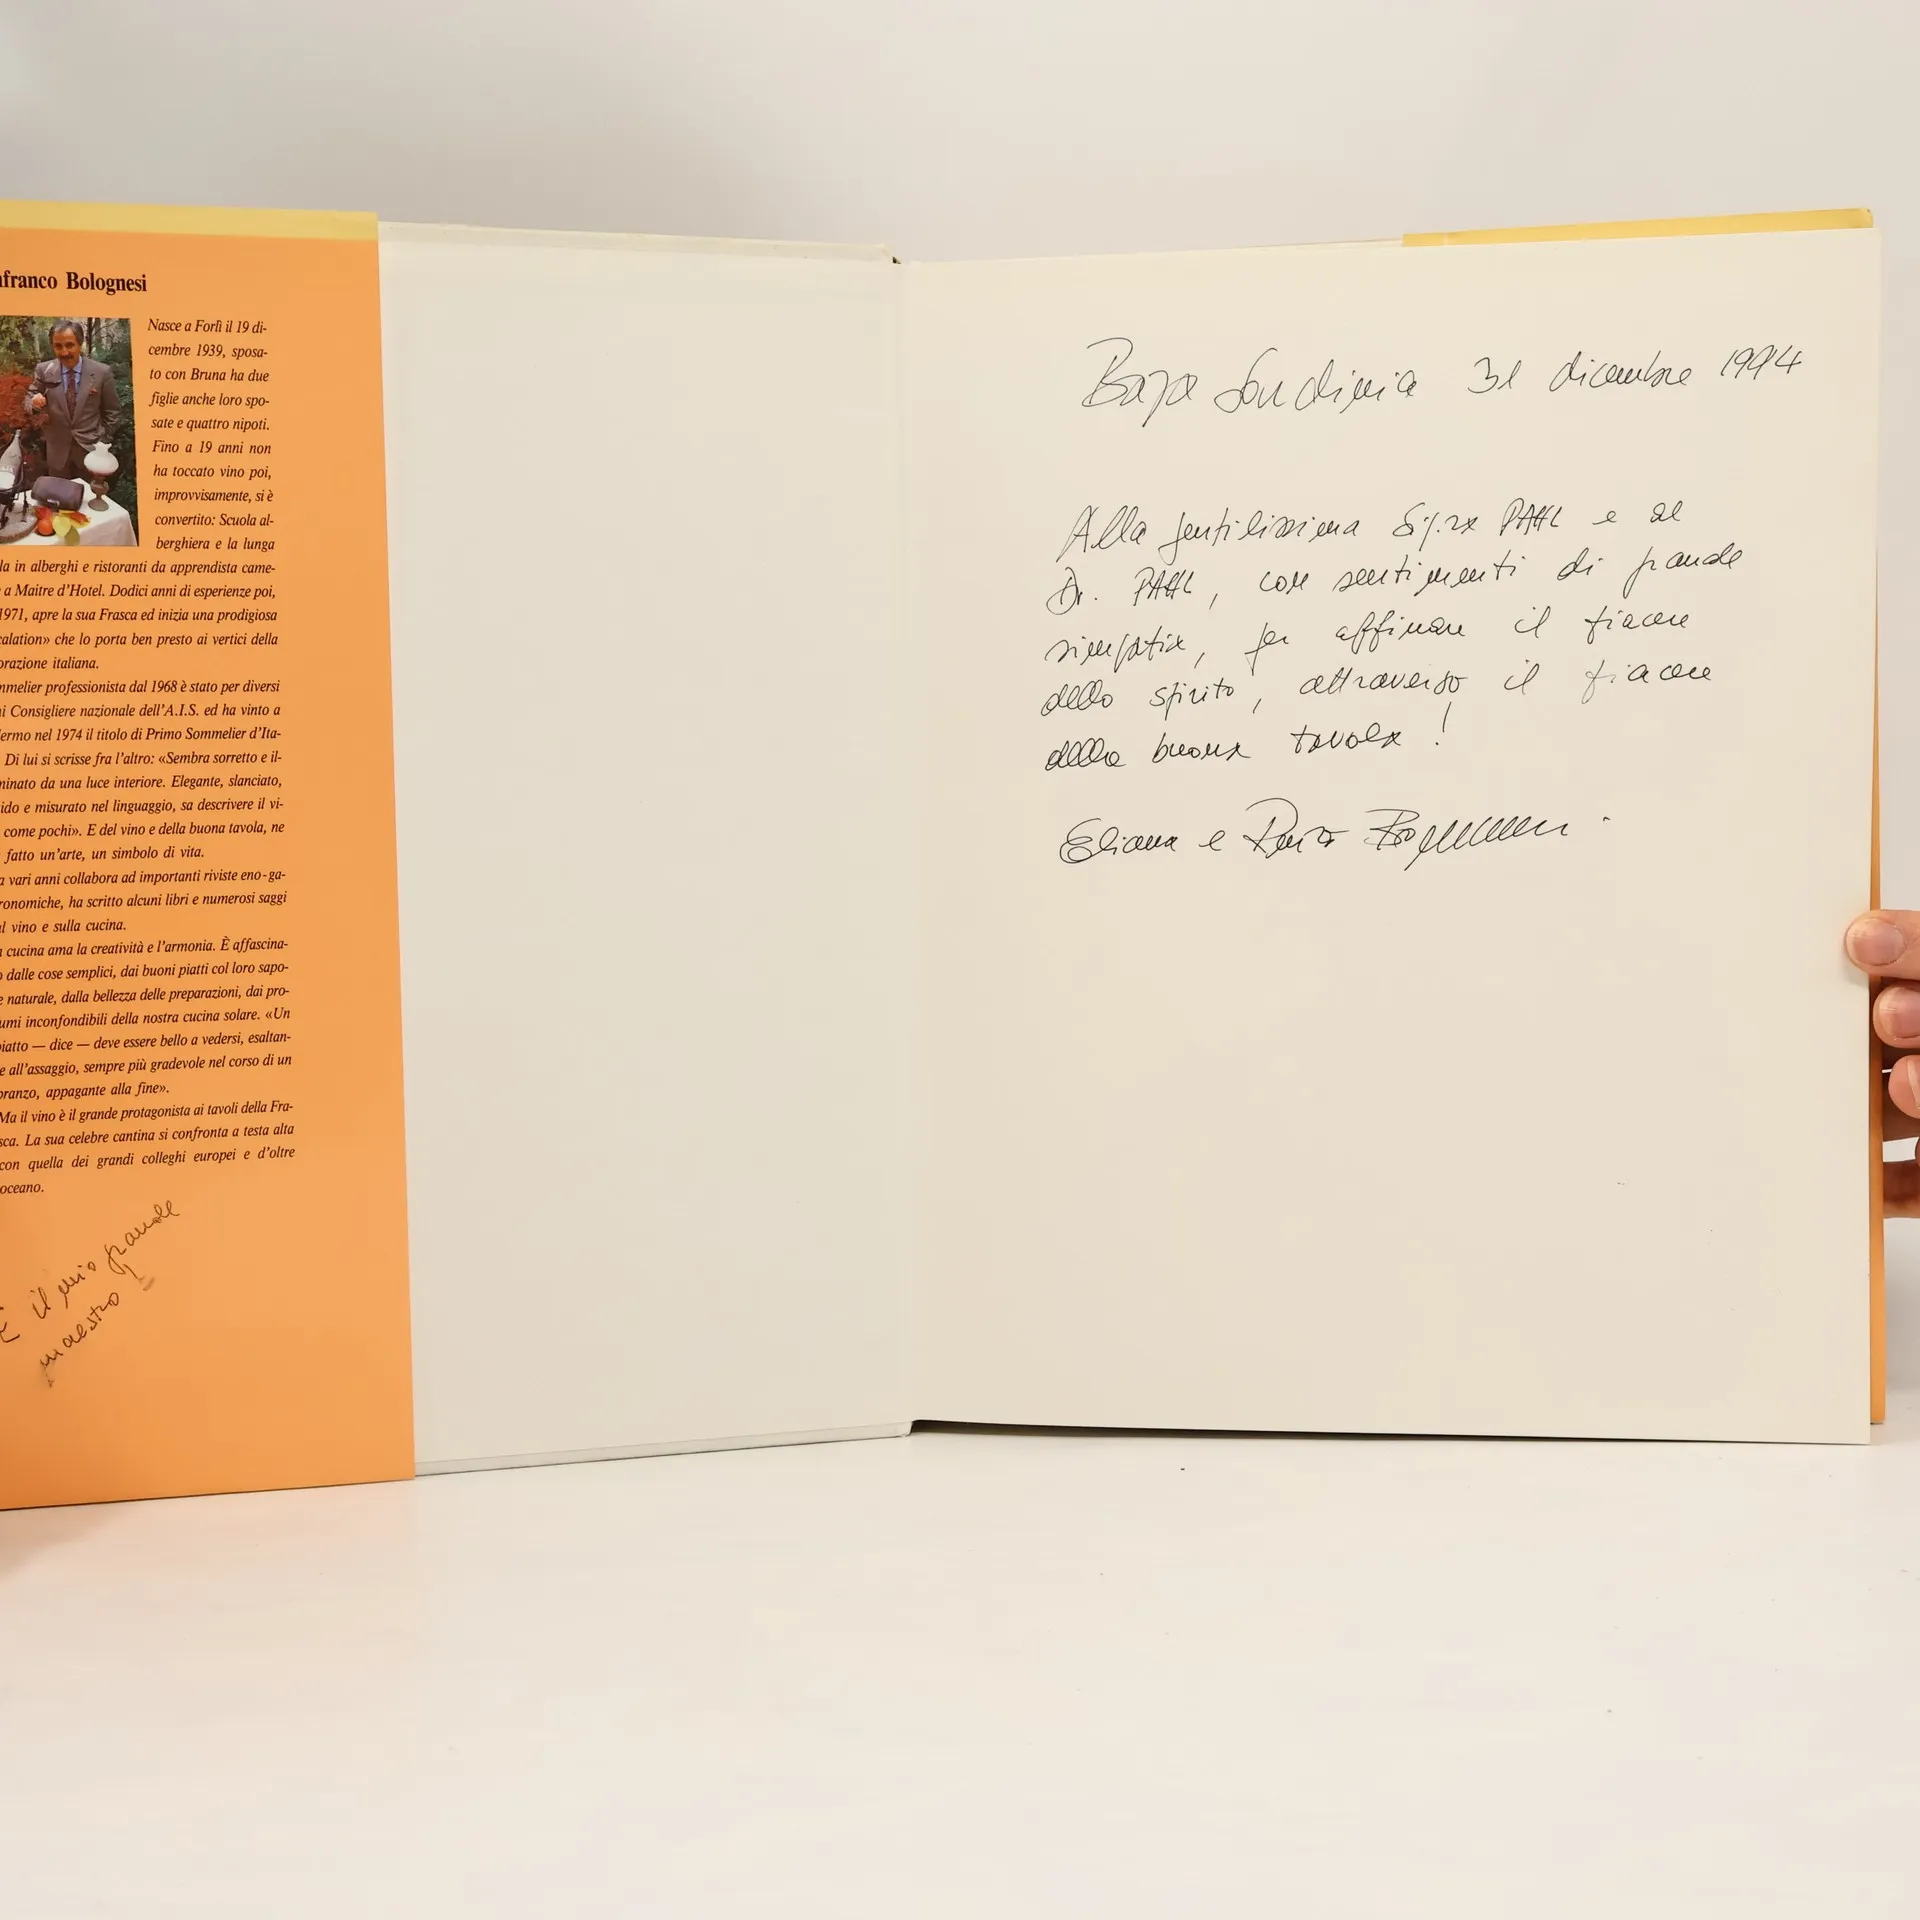 nfranco Bolognesi
Nasce a Forlì il 19 di-
cembre 1939, sposa-
to con Bruna ha due
figlie anche loro spo-
sate e quattro nipoti.
Fino a 19 anni non
ha toccato vino poi,
improvvisamente, si è
convertito: Scuola al-
berghiera e la lunga
la in alberghi e ristoranti da apprendista came-
a Maitre d'Hotel. Dodici anni di esperienze poi,
1971, apre la sua Frasca ed inizia una prodigiosa
calation» che lo porta ben presto ai vertici della
orazione italiana.
mmelier professionista dal 1968 è stato per diversi
ni Consigliere nazionale dell'A.I.S. ed ha vinto a
lermo nel 1974 il titolo di Primo Sommelier d'Ita-
Di lui si scrisse fra l'altro: «Sembra sorretto e il-
minato da una luce interiore. Elegante, slanciato,
ido e misurato nel linguaggio, sa descrivere il vi-
come pochi». E del vino e della buona tavola, ne
fatto un'arte, un simbolo di vita.
a vari anni collabora ad importanti riviste eno-ga-
ronomiche, ha scritto alcuni libri e numerosi saggi
l vino e sulla cucina.
cucina ama la creatività e l'armonia. È affascina-
o dalle cose semplici, dai buoni piatti col loro sapo-
e naturale, dalla bellezza delle preparazioni, dai pro-
umi inconfondibili della nostra cucina solare. «Un
piatto — dice — deve essere bello a vedersi, esaltan-
e all'assaggio, sempre più gradevole nel corso di un
pranzo, appagante alla fine».
Ma il vino è il grande protagonista ai tavoli della Fra-
sca. La sua celebre cantina si confronta a testa alta
con quella dei grandi colleghi europei e d'oltre
oceano.
È il mio grande
maestro!
Baja Sardinia 31 dicembre 1994
Alla gentilissima Sig.ra PAHL e al
Dr. PAHL, con sentimenti di grande
simpatia, per affinare il piacere
dello spirito, attraverso il piacere
della buona tavola!
Eliana e